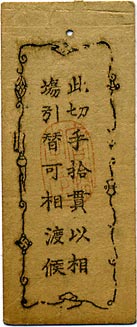 此切手拾貫以相
場引替可相渡候